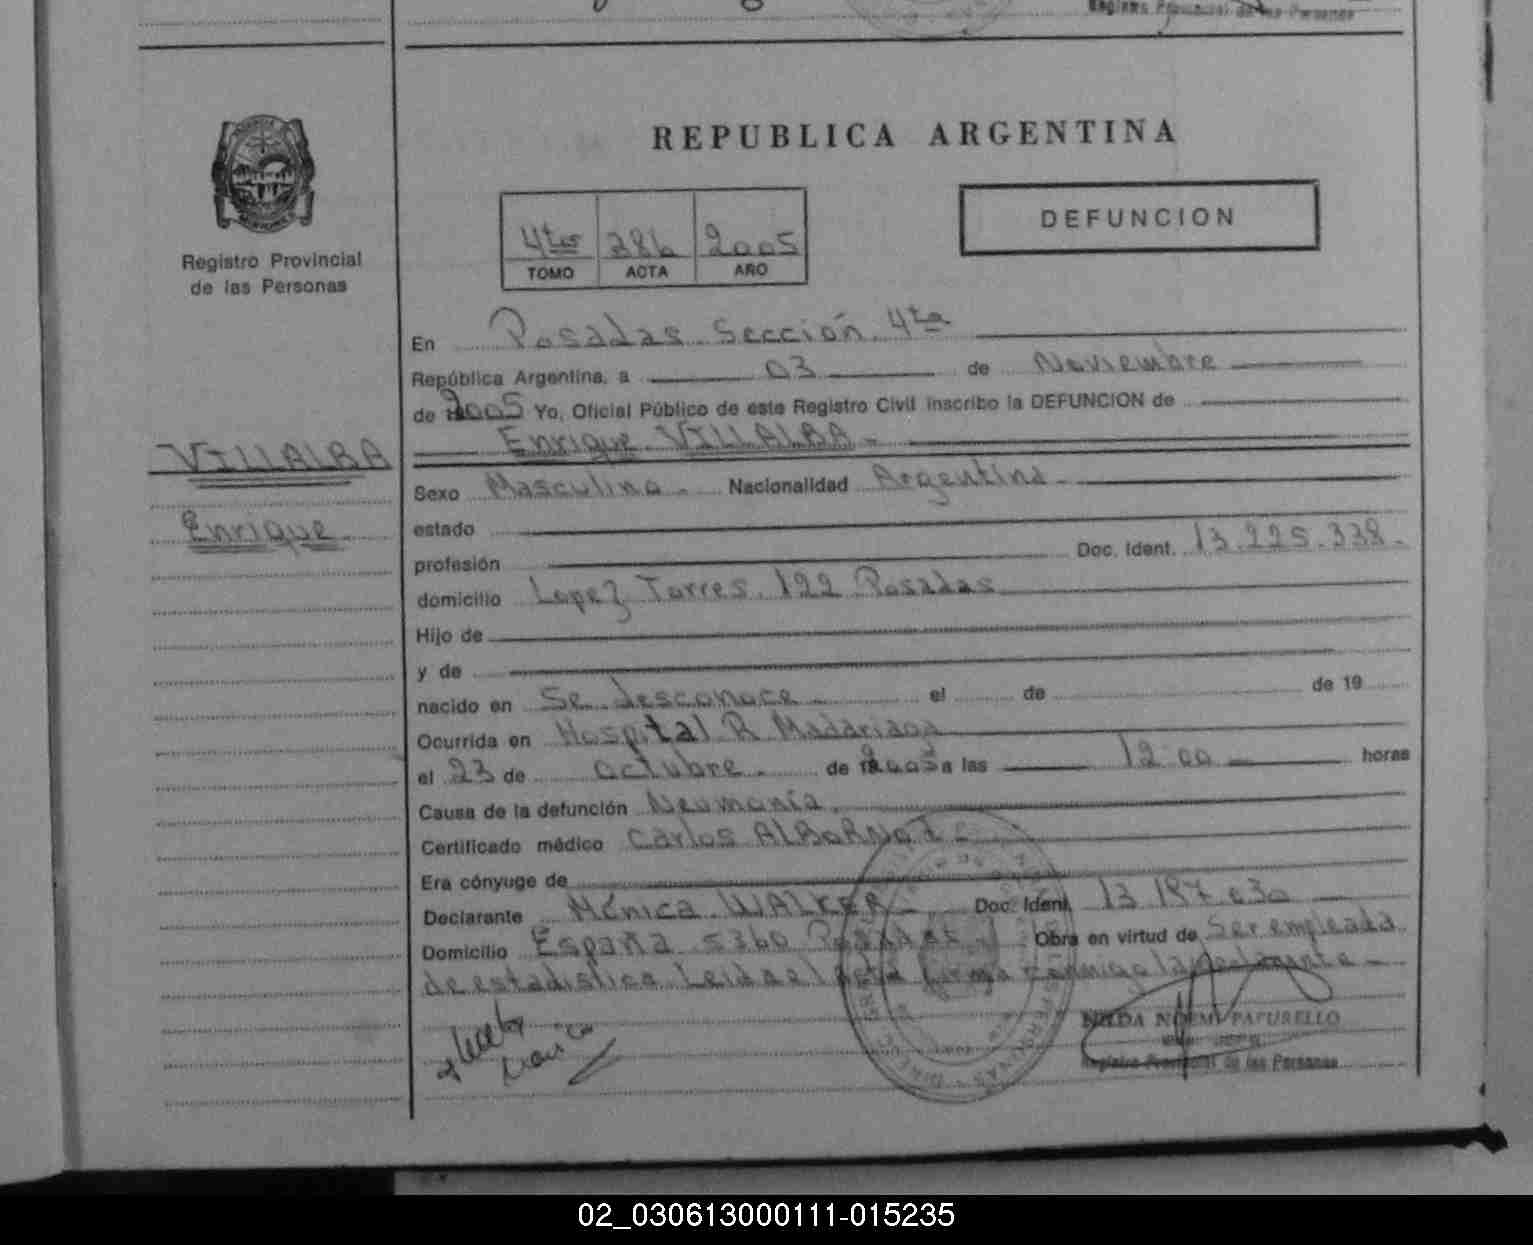 Registro Provincial de las Personas
REPUBLICA ARGENTINA
DEFUNCION
4tos 286 2005
TOMO ACTA AÑO
Registro Provincial
de las Personas
En Posadas Sección 4ta
República Argentina, a 03 de Noviembre
de 2005 Yo, Oficial Público de este Registro Civil inscribo la DEFUNCION de
Enrique VILLALBA -
VILLALBA
Enrique
Sexo Masculino - Nacionalidad Argentina -
estado
profesión Doc. Ident. 13.225.338-
domicilio Lopez Torres 122 Posadas
Hijo de
y de
nacido en Se desconoce el de de 19
Ocurrida en Hospital R. Madariaga
el 23 de octubre - de 2005 a las 12:00 horas
Causa de la defunción Neumonía
Certificado médico Carlos ALBORNOZ -
Era cónyuge de
Declarante Mónica WALKER - Doc. Ident. 13.187.030
Domicilio España 5360 Posadas Obra en virtud de Ser empleada
de estadistica Leida el acta firma conmigo la declarante -
NILDA NOEMI PAFURELLO
Registro Provincial de las Personas
02_030613000111-015235